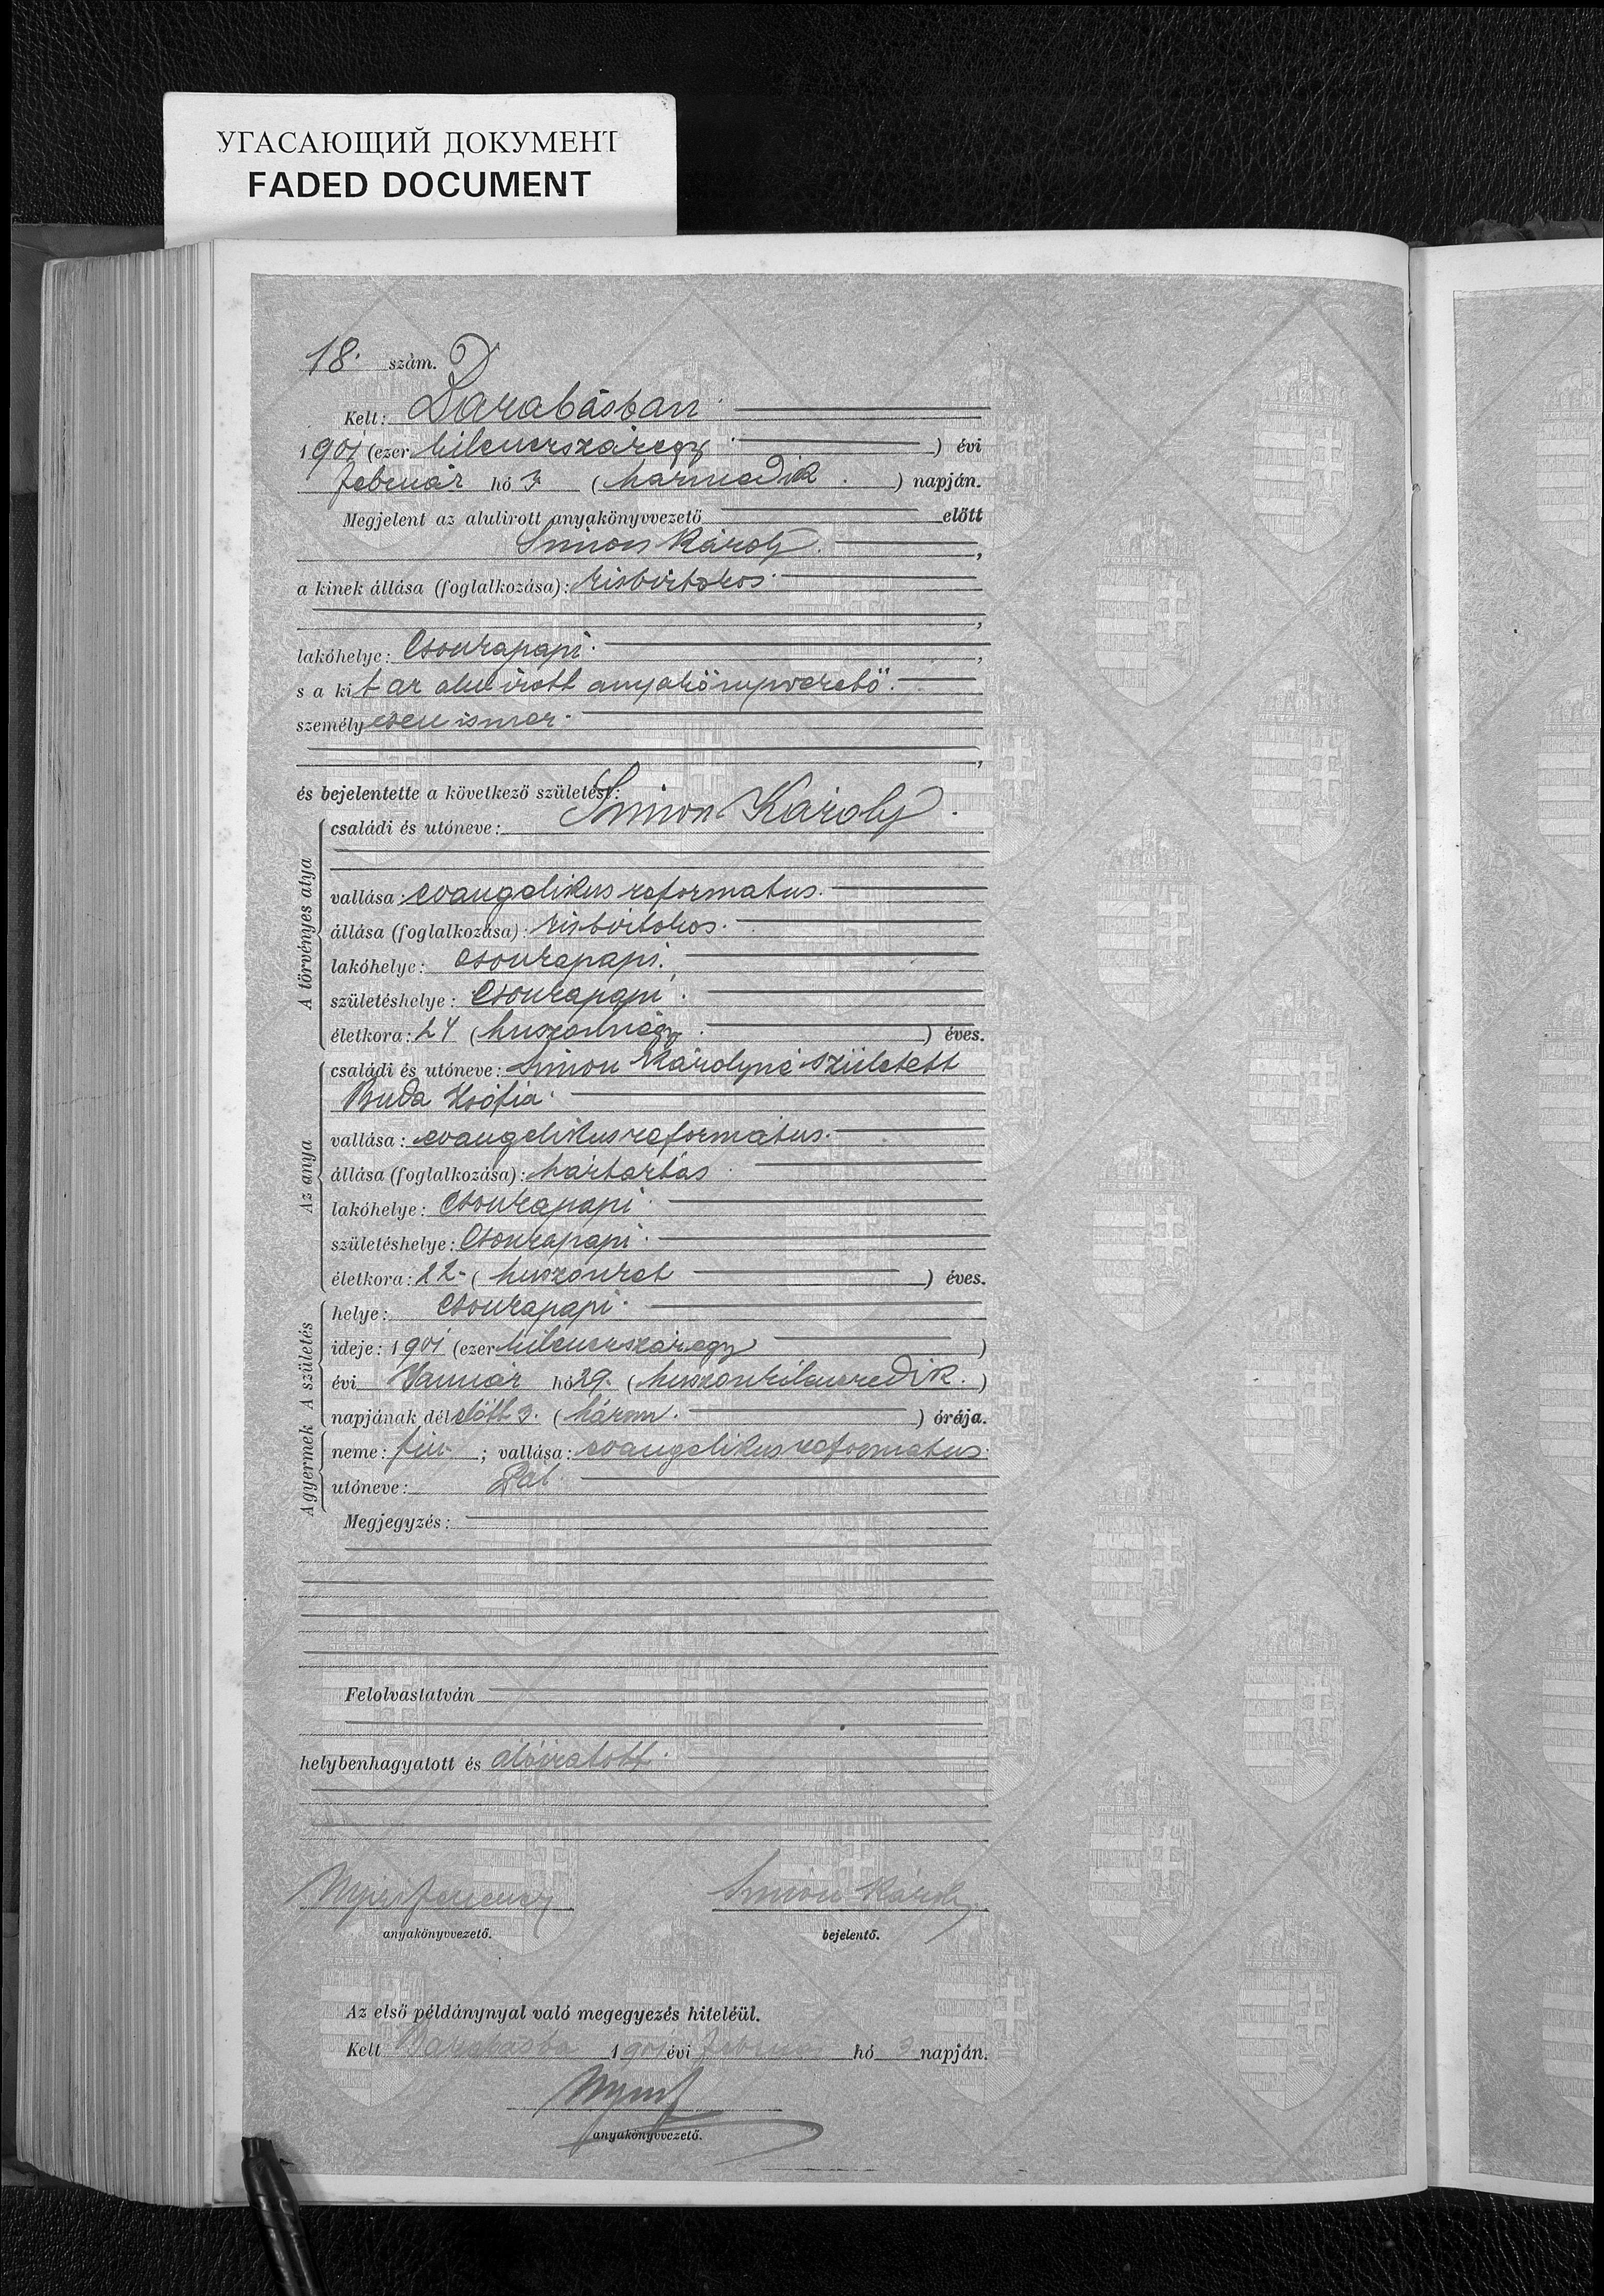 УГАСАЮЩИЙ ДОКУМЕНТ
FADED DOCUMENT
18. szám.
Kelt: Barabásban
1901 (ezer kilencszázegy) évi
február hó 3 (harmadik) napján.
Megjelent az alulirott anyakönyvvezető előtt
Simon Károly,
a kinek állása (foglalkozása): kisbirtokos
lakóhelye: Csonkapapi,
s a kit az alulirott anyakönyvvezető
személyesen ismer,
és bejelentette a következő születést:
A törvényes atya
családi és utóneve: Simon Károly
vallása: evangelikus reformatus
állása (foglalkozása): kisbirtokos
lakóhelye: Csonkapapi
születéshelye: Csonkapapi
életkora: 24 (huszonnégy) éves.
Az anya
családi és utóneve: Simon Károlyné született
Buda Zsófia
vallása: evangelikus reformatus
állása (foglalkozása): háztartás
lakóhelye: Csonkapapi
születéshelye: Csonkapapi
életkora: 22 (huszonket) éves.
A születés
helye: Csonkapapi
ideje: 1901 (ezer kilencszázegy)
évi Január hó 29. (huszonkilencedik.)
napjának délelőtt 3. (három.) órája.
A gyermek
neme: fiu; vallása: evangelikus reformatus
utóneve: Pál
Megjegyzés:
Felolvastatván
helybenhagyatott és aláiratott
Nyiri Ferencz Simon Károly
anyakönyvvezető. bejelentő.
Az első példánynyal való megegyezés hiteléül.
Kelt Barabásba 1901 évi február hó 3 napján.
anyakönyvvezető.